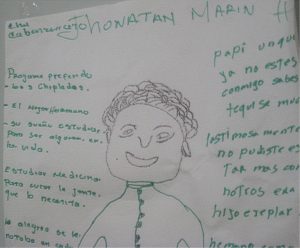 Jhonatan Marin H
Programa preferido
- los Chiplados.
- El Mejor Hermano
- su sueño estudiar,
Para ser alguien, en
la vida.
Estudiar Medicina
Para curar la gente,
que lo necesita.
la alegria se le
notaba en cada
papi unque
ya no estes
conmigo sabes
te quise mu
lastimosamente
no pudiste es
Tar mas con
notros era
hijo exeplar
hermano